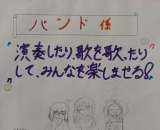 バンド係
演奏したり、歌を歌ったり
して、みんなを楽しませる!